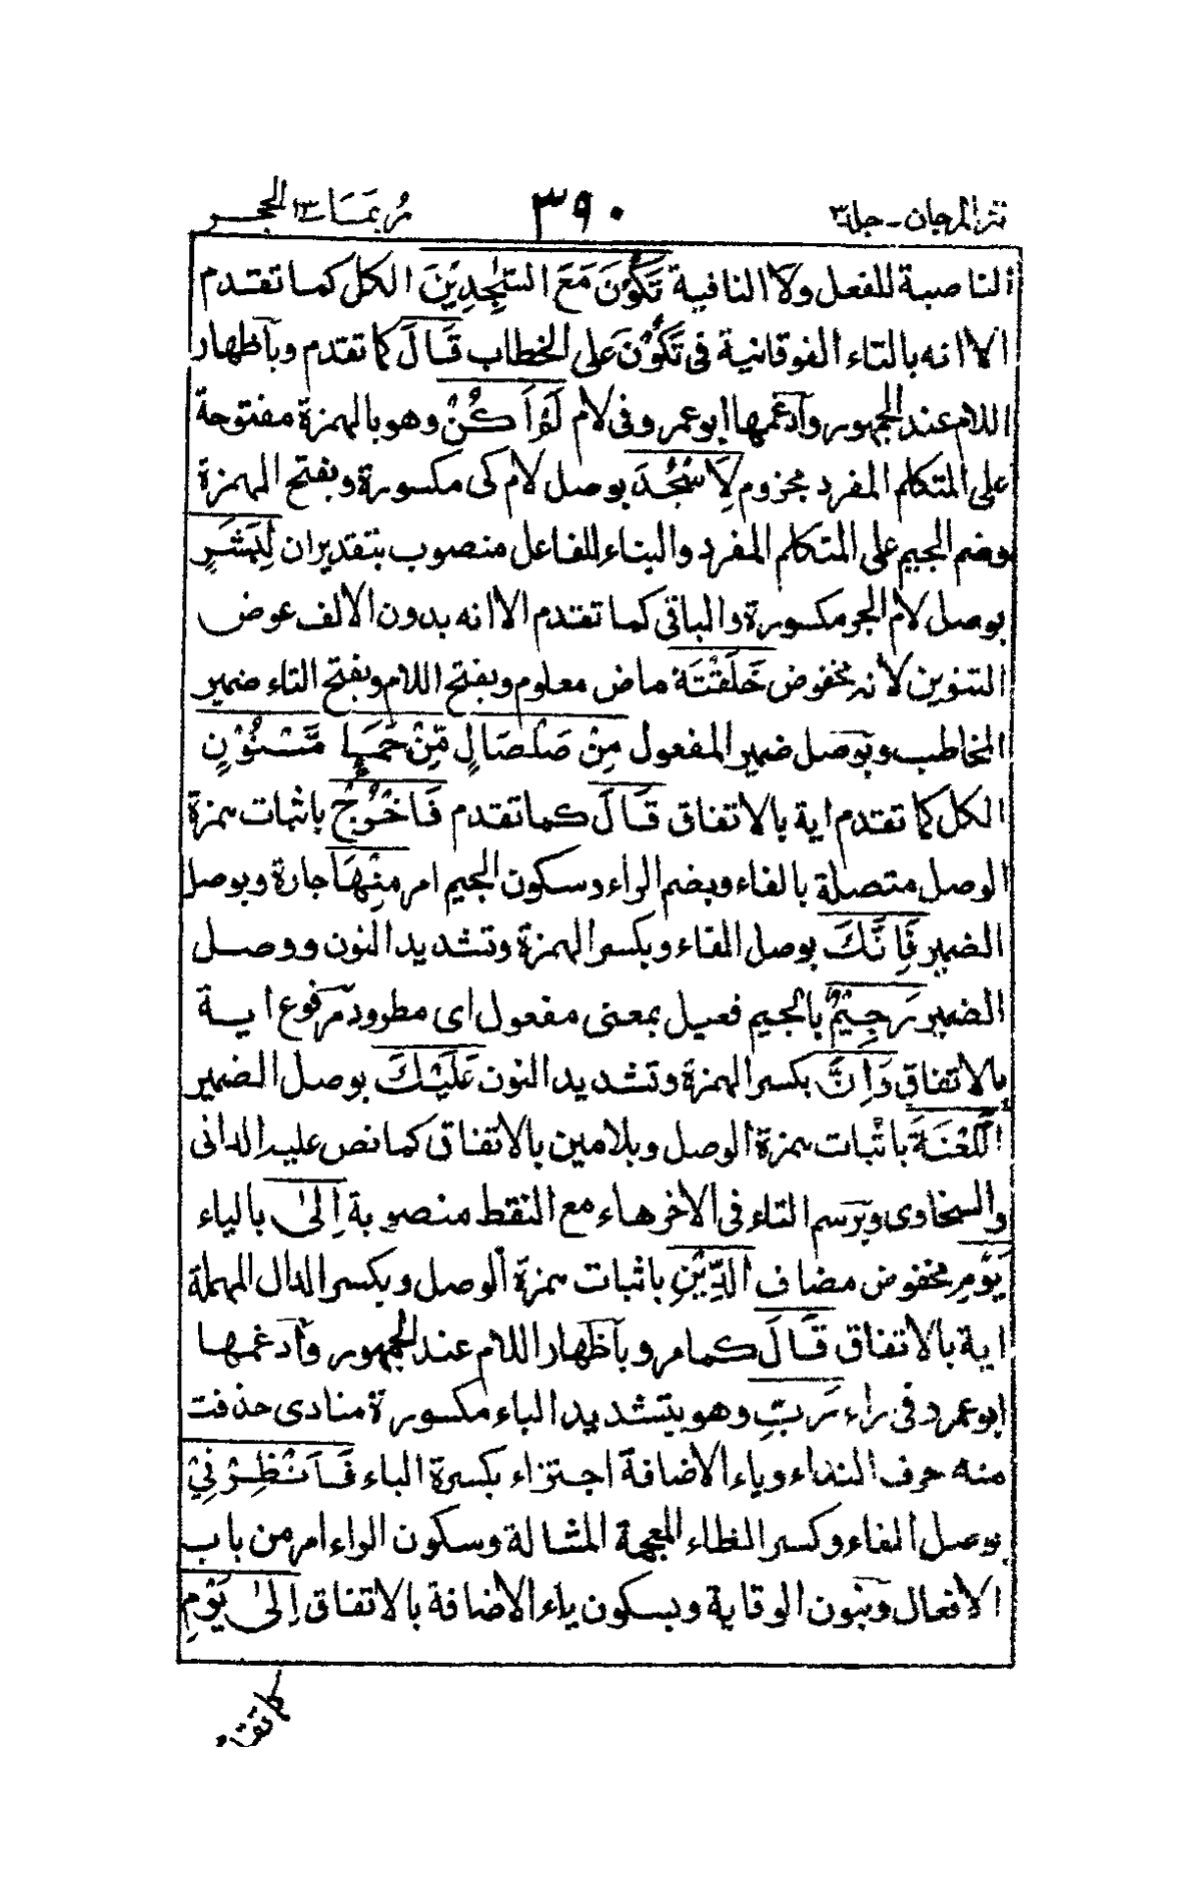 نثر المرجان - جلد ٣
٣٩٠
ربما ١٤ الحجر
الناصبة للفعل ولا النافية تَكُوْنَ مَعَ السّٰجِدِيْنَ الكل كما تقدم
الا انه بالتاء الفوقانية فى تَكُوْنَ على الخطاب قَالَ كما تقدم وباظهار
اللام عند الجمهور وادغمها ابو عمرو فى لام لَمْ اَكُنْ وهو بالهمزة مفتوحة
على المتكلم المفرد مجزوم لِاَسْجُدَ بوصل لام كى مكسورة وبفتح الهمزة
وضم الجيم على المتكلم المفرد والبناء للفاعل منصوب بتقدير ان لِبَشَرٍ
بوصل لام الجر مكسورة والباقى كما تقدم الا انه بدون الالف عوض
التنوين لانه مخفوض خَلَقْتَهٗ ماض معلوم وبفتح اللام وبفتح التاء ضمير
المخاطب وبوصل ضمير المفعول مِنْ صَلْصَالٍ مِّنْ حَمَاٍ مَّسْنُوْنٍ
الكل كما تقدم اية بالاتفاق قَالَ كما تقدم فَاخْرُجْ باثبات همزة
الوصل متصلة بالفاء وبضم الراء وسكون الجيم امر مِنْهَا جارة وبوصل
الضمير فَاِنَّكَ بوصل الفاء وبكسر الهمزة وتشديد النون ووصل
الضمير رَجِيْمٌ بالجيم فعيل بمعنى مفعول اى مطرود مرفوع اية
بالاتفاق وَاِنَّ بكسر الهمزة وتشديد النون عَلَيْكَ بوصل الضمير
اللَّعْنَةَ باثبات همزة الوصل وبلامين بالاتفاق كما نص عليه الدانى
والسخاوى وبرسم التاء فى الاخر هاء مع النقط منصوبة اِلٰى بالياء
يَوْمِ مخفوض مضاف الدِّيْنِ باثبات همزة الوصل وبكسر الدال المهملة
اية بالاتفاق قَالَ كما مر وباظهار اللام عند الجمهور وادغمها
ابو عمرو فى راء رَبِّ وهو بتشديد الباء مكسورة منادى حذفت
منه حرف النداء وياء الاضافة اجتزاء بكسرة الباء فَاَنْظِرْنِيْ
بوصل الفاء وكسر الظاء المعجمة المشالة وسكون الراء امر من باب
الافعال وبنون الوقاية وبسكون ياء الاضافة بالاتفاق اِلٰى يَوْمِ